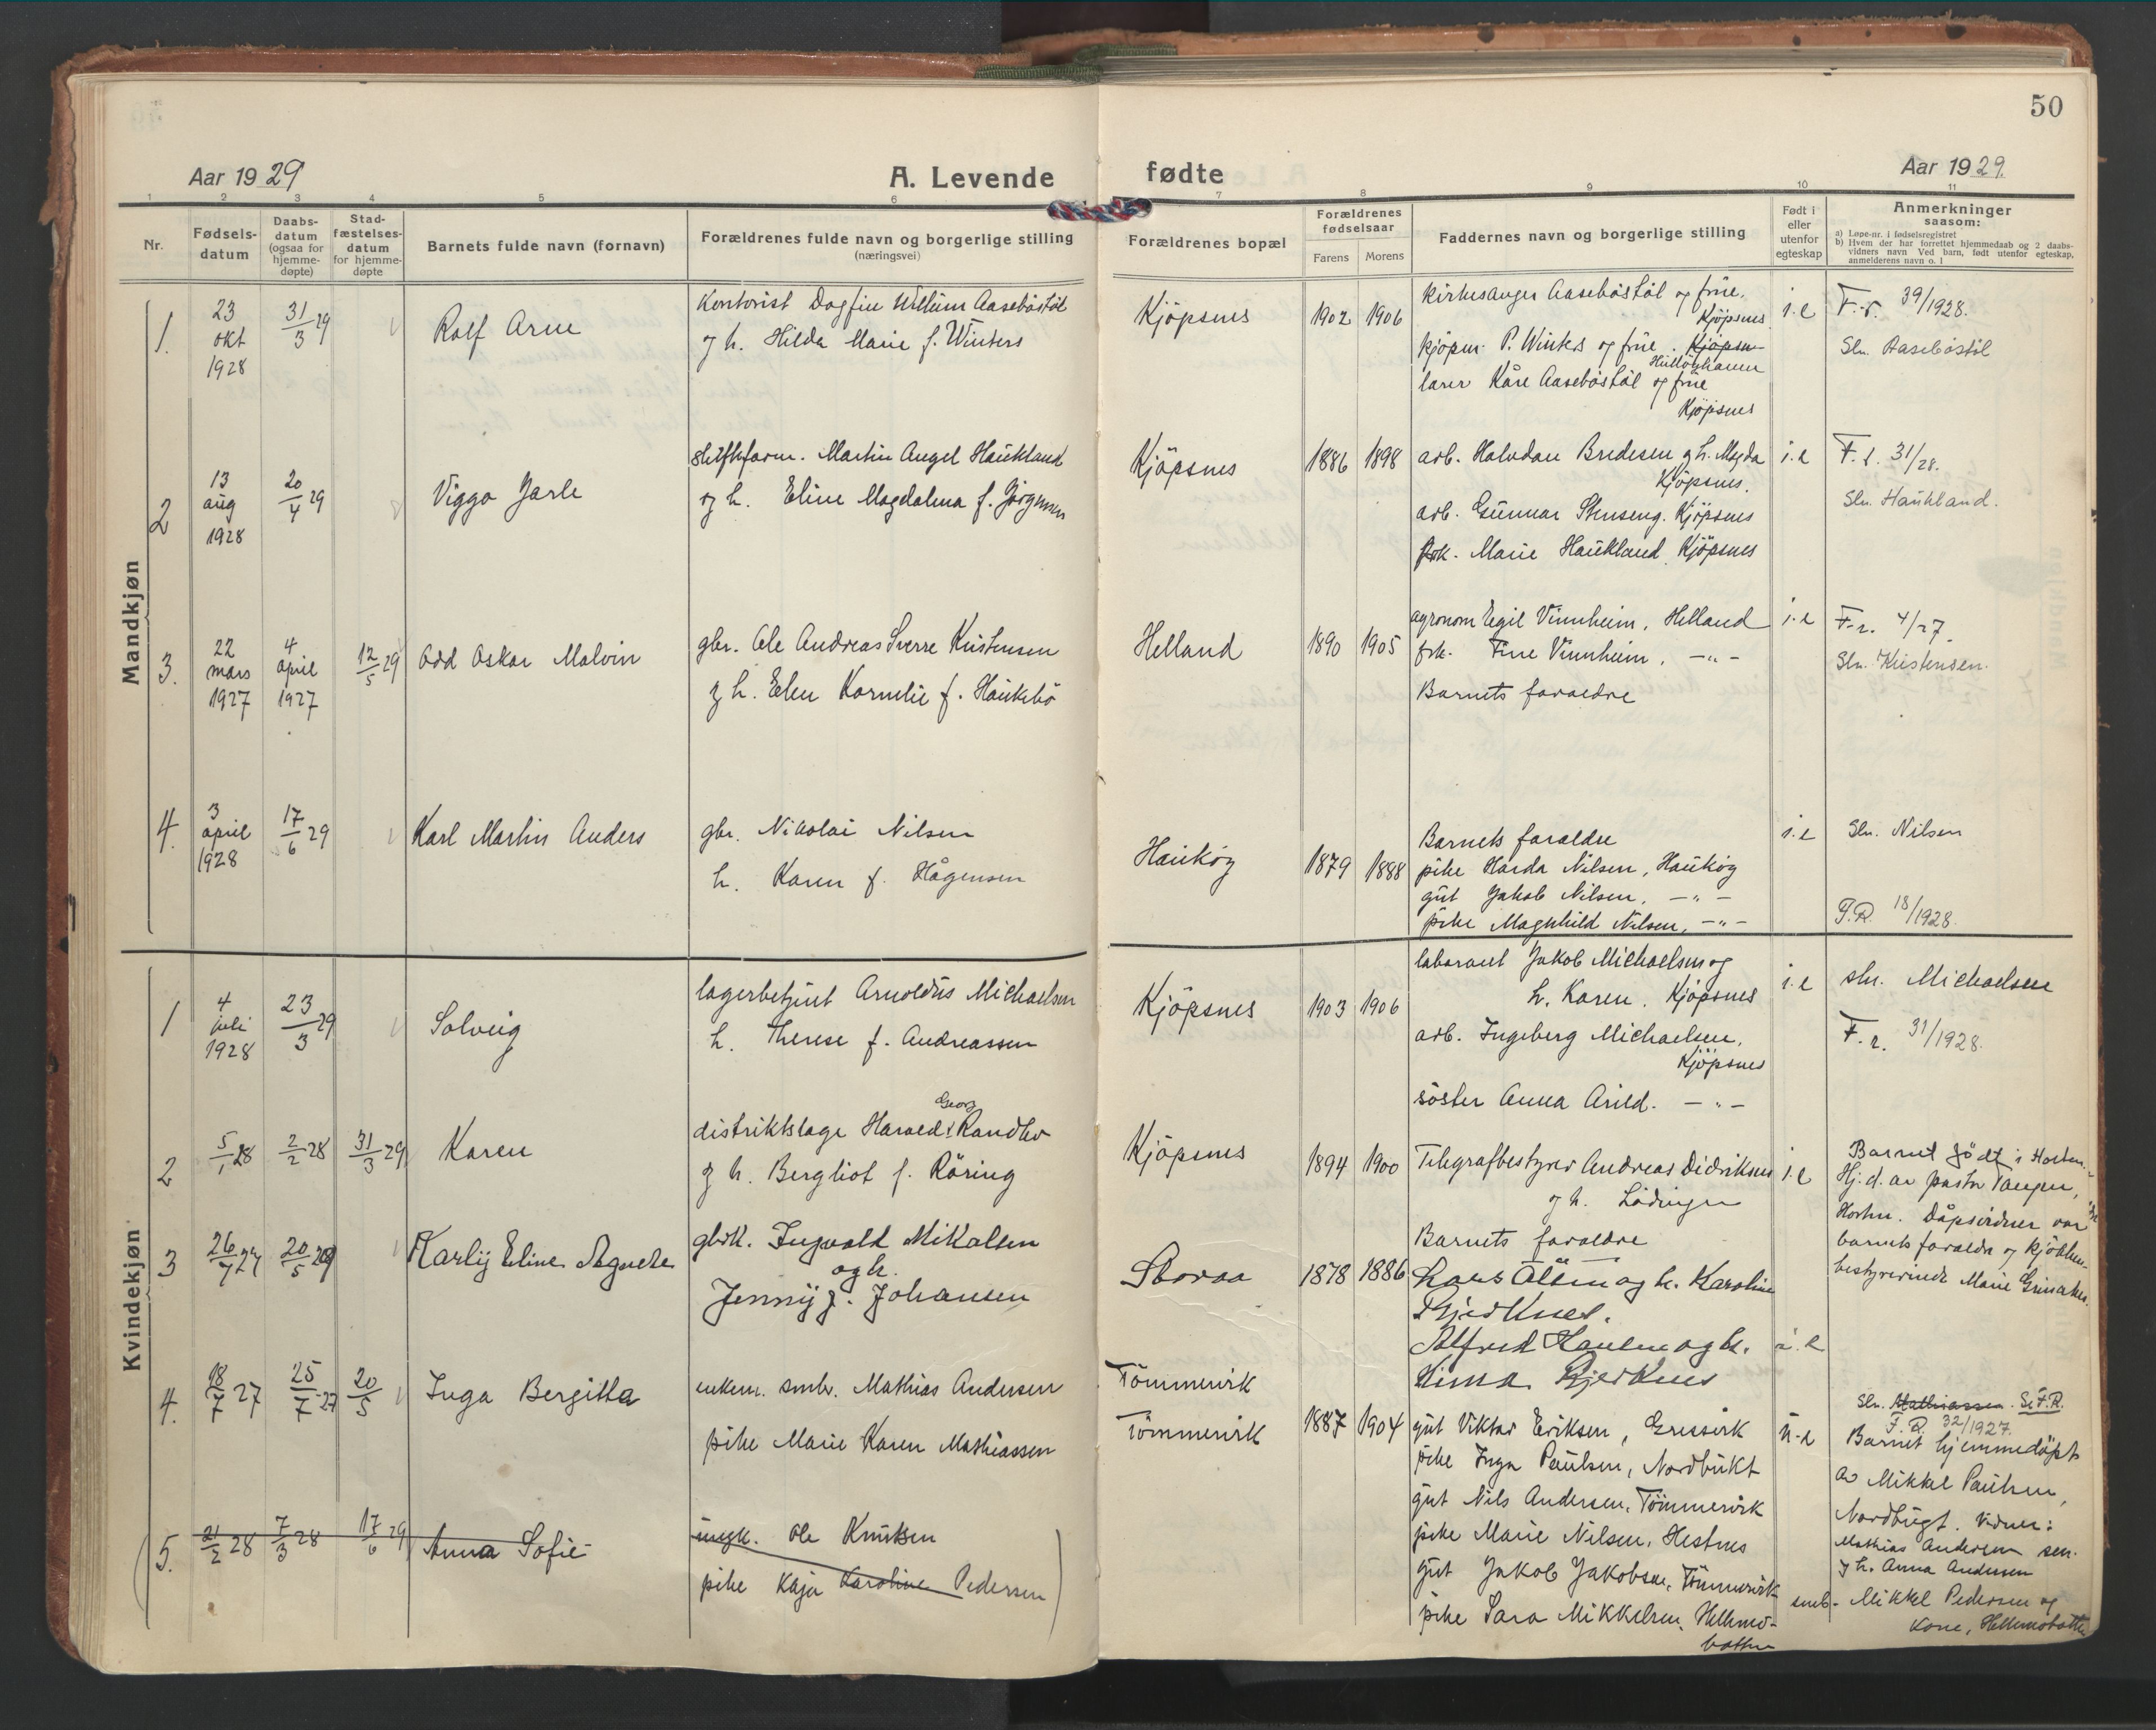 50
Aar 1929
A. Levende
fødte
Aar 1929.
1 2 3 4 5 6 7 8 9 10 11
Nr.
Fødsels-
datum
Daabs-
datum
(ogsaa for
hjemme-
døpte)
Stad-
fæstelses-
datum
for hjemme-
døpte
Barnets fulde navn (fornavn)
Forældrenes fulde navn og borgerlige stilling
(næringsvei)
Forældrenes bopæl
Forældrenes
fødselsaar
Farens Morens
Faddernes navn og borgerlige stilling
Født i
eller
utenfor
egteskap
Anmerkninger
saasom:
a) Løpe-nr. i fødselsregistret
b) Hvem der har forrettet hjemmedaab og 2 daabs-
vidners navn Ved barn, født utenfor egteskap,
anmelderens navn o. l
Mandkjøn
1.
23
okt
1928
31/3 29
Rolf Arne
Kontorist Dagfin Aasebøstøl
og h. Hilda Marie f. Winters
Kjöpsnes
1902 1906
Kirkesanger Aasebøstöl og frue.
Kjöpsnes
kjöpm. P. Winters og frue. Kjöpsn
lærer Kåre Aasebøstöl og frue
Kjöpsnes
i.e
F.r. 39/1928.
Sln. Aasebøstöl
2
13
aug
1928
20/4 29
Viggo Jarle
Martin Angel Haukland
og h. Eline Magdalena f. Jörgensen
Kjöpsnes
1886 1898
arb. Halvdan Bredesen og h. Magda
Kjöpsnes.
arb. Gunnar Stenseng. Kjöpsnes
frk. Marie Haukland. Kjöpsnes
i.e
F.r. 31/28.
Sln. Haukland.
3.
22
mars
1927
4
april
1927
12/5 29
Odd Oskar Malvin
gbr. Ole Andreas Sverre Kristensen
og h. Elen Kornelie f. Haukebö
Helland
1890 1905
agronom Egil Vinnheim, Helland
frk. Tine Vinnheim, -"-
Barnets foraldre
i.e
F.r. 4/27.
Sln. Kristensen.
4.
3
april
1928
17/6 29
Karl Martin Anders
gbr. Nikolai Nilsen
h. Karen f. Hågensen
Haukøy
1879 1888
Barnets foraldre
pike Harda Nilsen, Haukøy
gut Jakob Nilsen, -"-
pike Magnhild Nilsen, -"-
i.e
Sln. Nilsen
F.R. 18/1928.
Kvindekjøn
1
4
juli
1928
23/3 29
Solveig
lagerbetjent Arnoldus Michaelsen
h. Therese f. Andreassen
Kjöpsnes
1903 1906
laborant Jakob Michaelsen og
h. Karen. Kjöpsnes
arb. Ingeberg Michaelsen,
Kjöpsnes
söster Anna Arild. -"-
i.e
sln. Michaelsen
F.r. 31/1928.
2
5/1 28
2/2 28
31/3 29
Karen
Georg
distriktslæge Harald Randby
og h. Bergliot f. Röring
Kjöpsnes
1894 1900
Telegrafbestyrer Andreas Didriksen
og h. Lödingen
Barnets foraldre
i.e
Barnet födt i Horten.
Hj.d. av pastor Tangen,
Horten. Dåpsvidner var
barnets foraldre og kjökken-
bestyrerinde Marie
3
26/7 27
20/5 29
Karly Eline Agnete
gbrk. Ingvald Mikalsen
og h.
Jenny f. Johansen
Storaa
1878 1886
Lars Olsen og h. Karoline
Bjerknes.
Alfred Hansen og h.
Kima Bjerknes
i.e
4.
18/7 27
25/7 27
20/5
Inga Bergitta
enkem. smbr. Mathias Andersen
pike Marie Karen Mathiassen
Tömmervik
Tömmervik
1887 1904
gut Viktor Eriksen,
pike Inga Paulsen, Nordbukt
gut Nils Andersen, Tömmervik
pike Marie Nilsen, Hestnes
gut Jakob Jakobsen, Tömmervik
pike Sara Mikkelsen, Hellemo-
botten
u.e
Sln. Mathiassen. Se F.R.
F.R. 32/1927.
Barnet hjemmedöpt
av Mikkel Paulsen,
Nordbugt. Vidner:
Mathias Andersen sen.
og h. Anna Andersen
smb. Mikkel Pedersen og
kone, Hellemobotten
5.
21/2 28
7/3 28
17/6 29
Anna Sofie
ungk. Ole Knutsen
pike Kaja Karoline Pedersen